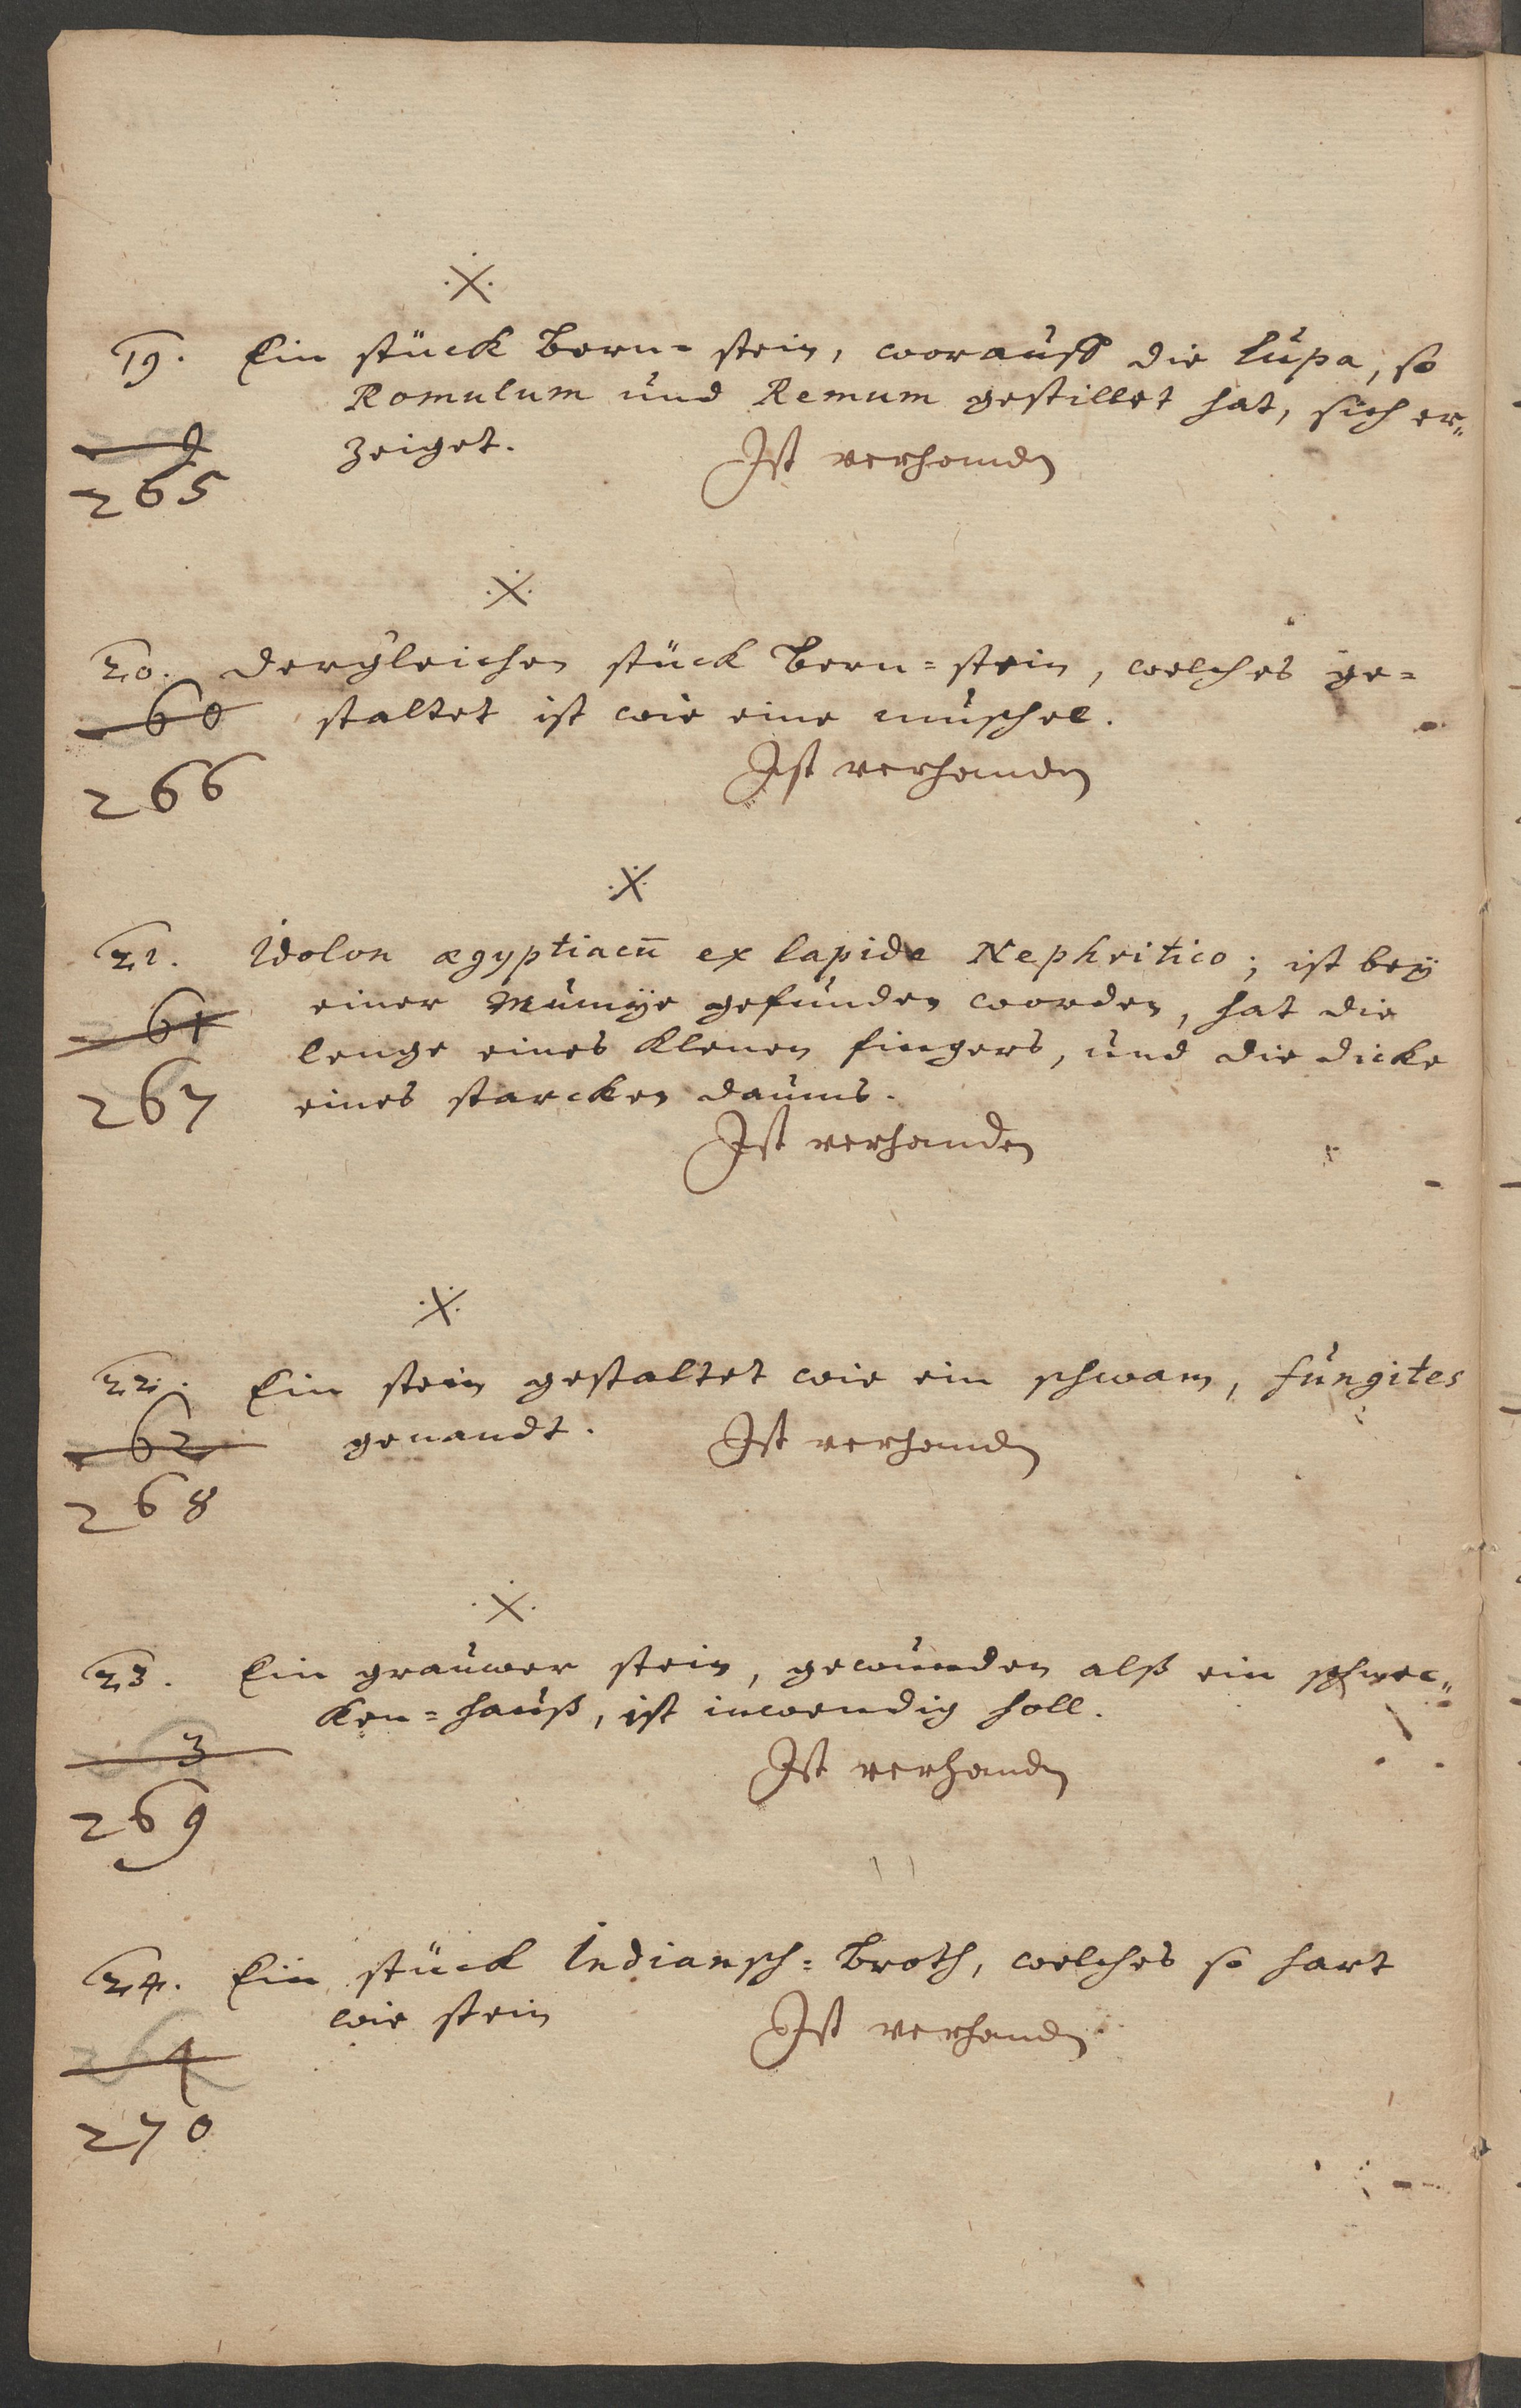 19. Ein stück Bern= stein, worauff die Lupa, so
Romulum und Remum gestillet hat, sich er„
zeiget.
Ist verhanden
9
265
20. dergleichen stück Bern=stein, welches ge=
staltet ist wie eine muschel.
60
Ist verhanden
266
21. Idolon ægyptiacū ex lapide Nephritico; ist bey
einer Mumÿe gefunden worden, hat die
61
lenge eines klenen fingers, und die dicke
267
eines starcken daums.
Ist verhanden
22. Ein stein gestaltet wie ein schwam, fungites
genandt.
Ist verhanden
62
268
23. Ein grauwer stein, gewunden alß ein schnec„
ken=hauß, ist inwendig holl.
3
Ist verhanden
269
24. Ein stück Indiansch=Broth, welches so hart
wie stein
Ist verhanden
264
270